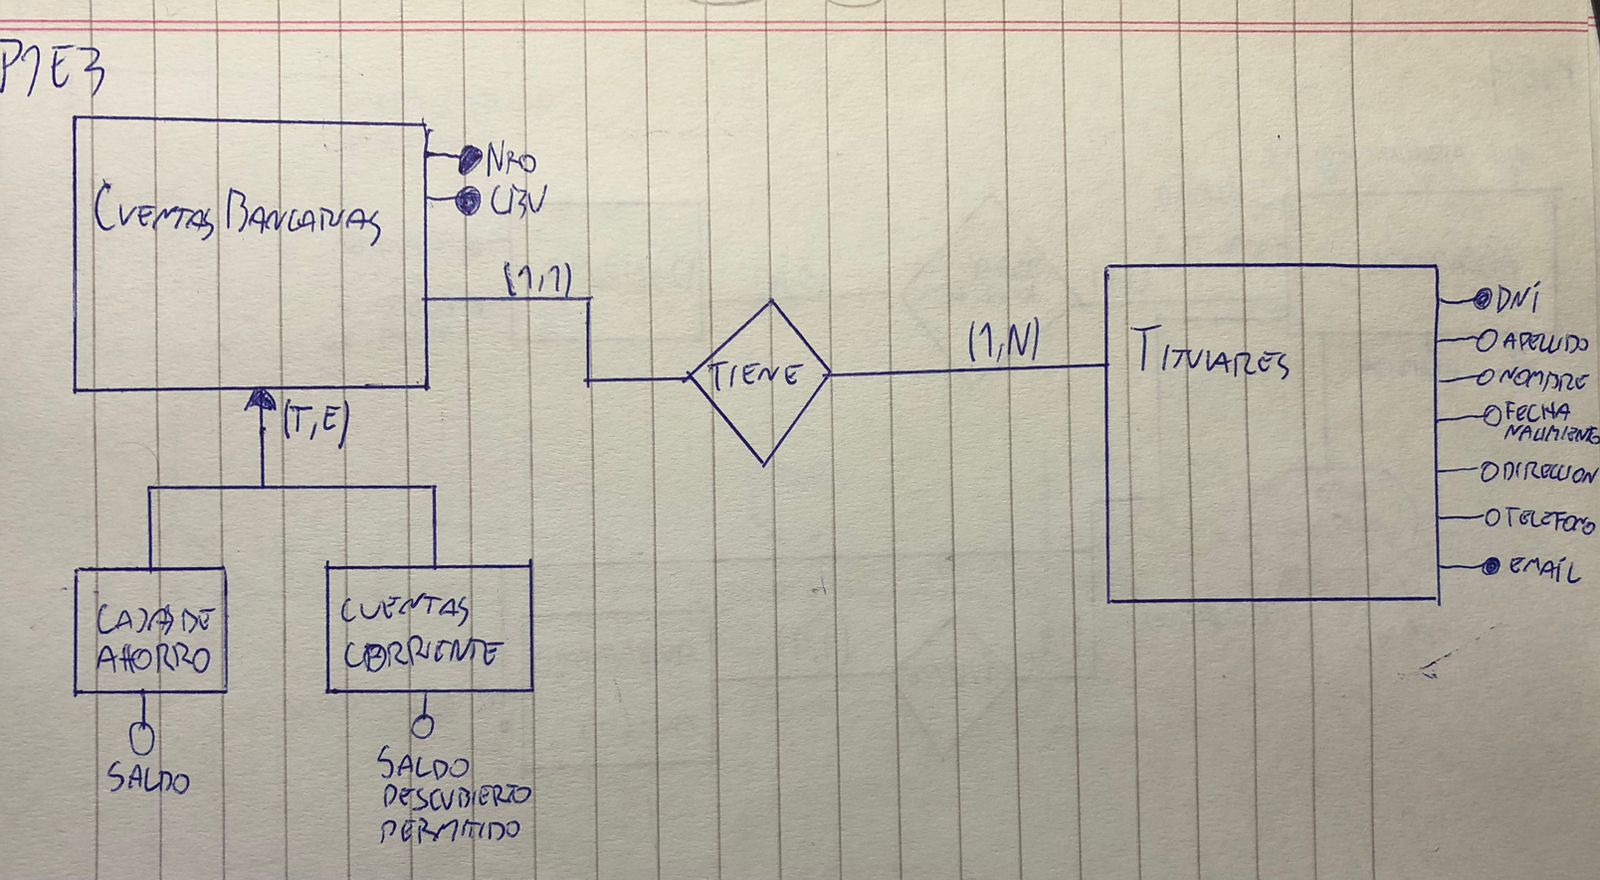 P1E3
CUENTAS BANCARIAS
NRO
CBU
(1,1)
TIENE
(1,N)
TITULARES
DNI
APELLIDO
NOMBRE
FECHA
NACIMIENTO
DIRECCION
TELEFONO
EMAIL
(T,E)
CAJAS DE
AHORRO
CUENTAS
CORRIENTE
SALDO
SALDO
DESCUBIERTO
PERMITIDO